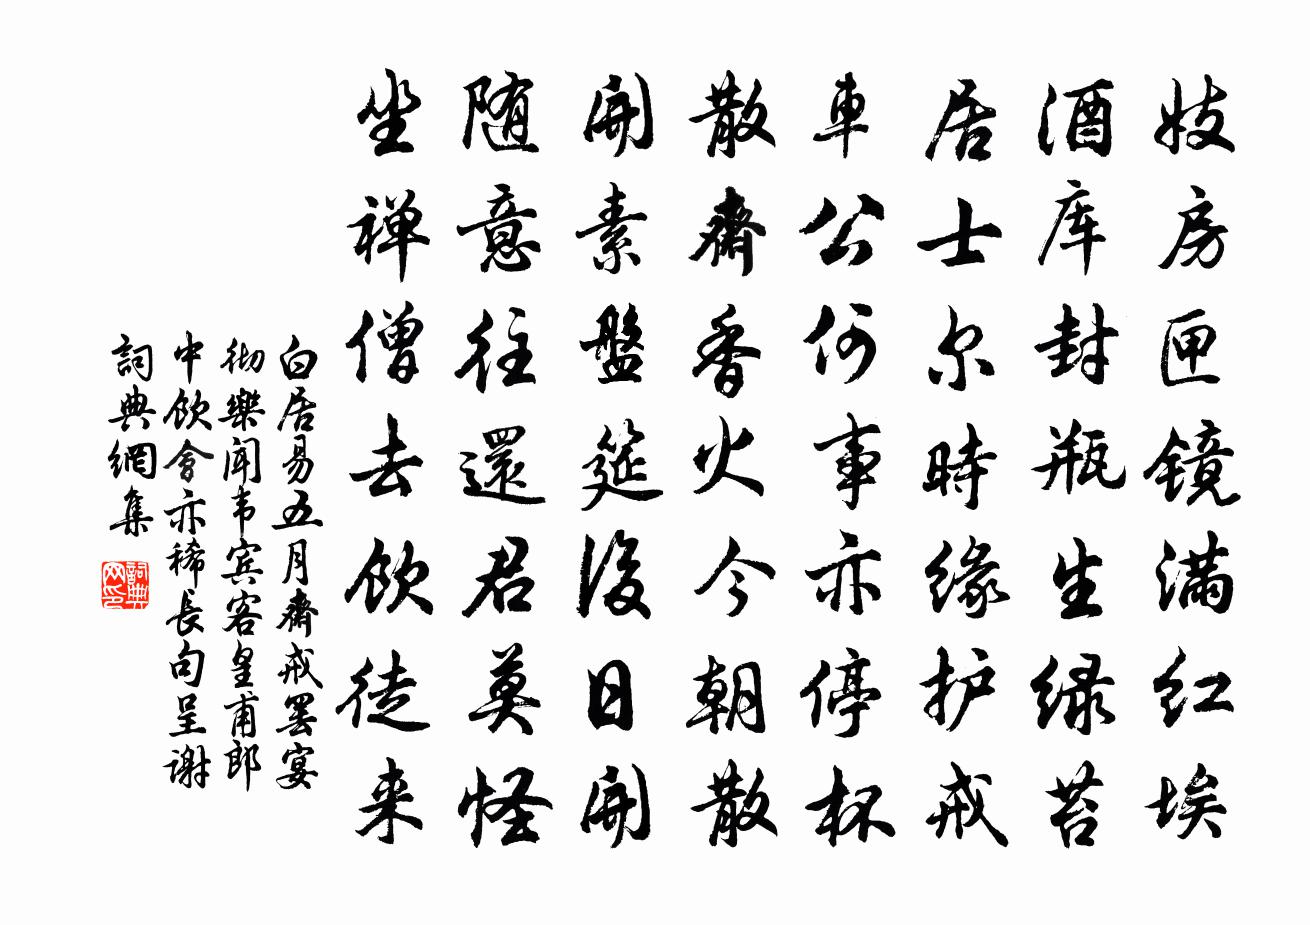 妓房匣镜满红埃
酒库封瓶生绿苔
居士尔時缘护戒
車公何事亦停杯
散齋香火今朝散
開素盤筵後日開
随意往還君莫怪
坐禅僧去飲徒来
白居易五月齋戒罢宴
彻樂闻韦宾客皇甫郎
中飲會亦稀長句呈谢
詞典網集
詞典网印